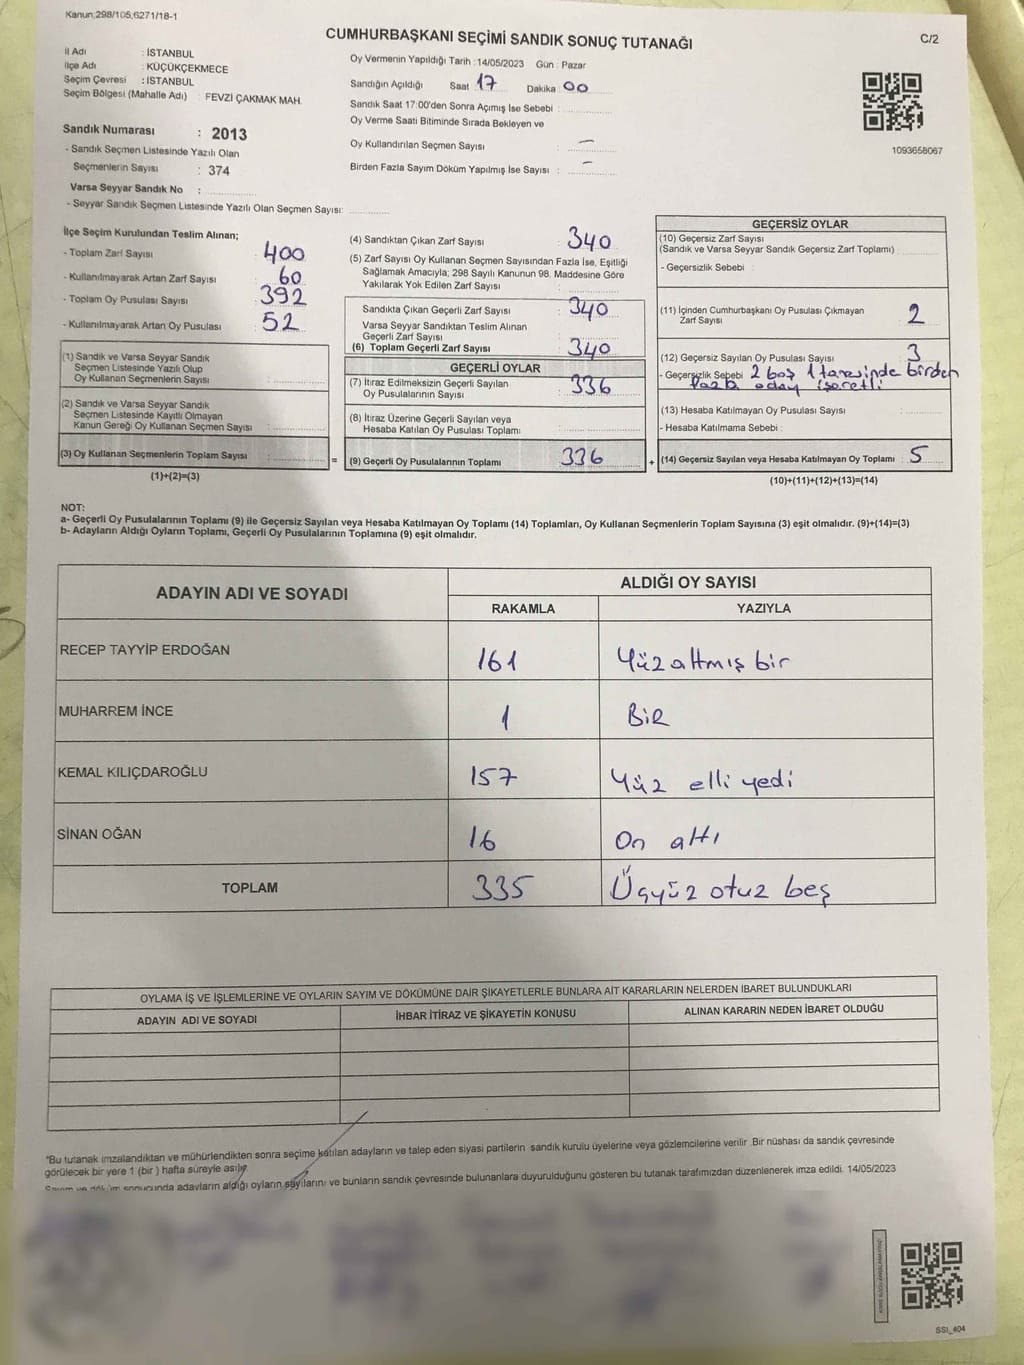 Kanun;298/105;6271/18-1
CUMHURBAŞKANI SEÇİMİ SANDIK SONUÇ TUTANAĞI
C/2
İl Adı : İSTANBUL
İlçe Adı : KÜÇÜKÇEKMECE
Seçim Çevresi : İSTANBUL
Seçim Bölgesi (Mahalle Adı) : FEVZİ ÇAKMAK MAH.
Sandık Numarası : 2013
- Sandık Seçmen Listesinde Yazılı Olan
Seçmenlerin Sayısı : 374
Varsa Seyyar Sandık No :
- Seyyar Sandık Seçmen Listesinde Yazılı Olan Seçmen Sayısı:
Oy Vermenin Yapıldığı Tarih : 14/05/2023 Gün : Pazar
Sandığın Açıldığı Saat 17 Dakika : 00
Sandık Saat 17:00'den Sonra Açımış İse Sebebi :
Oy Verme Saati Bitiminde Sırada Bekleyen ve
Oy Kullandırılan Seçmen Sayısı : —
Birden Fazla Sayım Döküm Yapılmış İse Sayısı : —
1093658067
İlçe Seçim Kurulundan Teslim Alınan;
- Toplam Zarf Sayısı : 400
- Kullanılmayarak Artan Zarf Sayısı : 60
- Toplam Oy Pusulası Sayısı : 392
- Kullanılmayarak Artan Oy Pusulası : 52
(1) Sandık ve Varsa Seyyar Sandık
Seçmen Listesinde Yazılı Olup
Oy Kullanan Seçmenlerin Sayısı :
(2) Sandık ve Varsa Seyyar Sandık
Seçmen Listesinde Kayıtlı Olmayan
Kanun Gereği Oy Kullanan Seçmen Sayısı :
(3) Oy Kullanan Seçmenlerin Toplam Sayısı :
(1)+(2)=(3)
=
(4) Sandıktan Çıkan Zarf Sayısı : 340
(5) Zarf Sayısı Oy Kullanan Seçmen Sayısından Fazla İse, Eşitliği
Sağlamak Amacıyla; 298 Sayılı Kanunun 98. Maddesine Göre
Yakılarak Yok Edilen Zarf Sayısı :
Sandıkta Çıkan Geçerli Zarf Sayısı : 340
Varsa Seyyar Sandıktan Teslim Alınan
Geçerli Zarf Sayısı :
(6) Toplam Geçerli Zarf Sayısı : 340
GEÇERLİ OYLAR
(7) İtiraz Edilmeksizin Geçerli Sayılan
Oy Pusulalarının Sayısı : 336
(8) İtiraz Üzerine Geçerli Sayılan veya
Hesaba Katılan Oy Pusulası Toplamı :
(9) Geçerli Oy Pusulalarının Toplamı : 336
+
GEÇERSİZ OYLAR
(10) Geçersiz Zarf Sayısı
(Sandık ve Varsa Seyyar Sandık Geçersiz Zarf Toplamı) :
- Geçersizlik Sebebi :
(11) İçinden Cumhurbaşkanı Oy Pusulası Çıkmayan
Zarf Sayısı : 2
(12) Geçersiz Sayılan Oy Pusulası Sayısı : 3
- Geçersizlik Sebebi 2 boş 1 tanesinde birden
fazla aday işaretli
(13) Hesaba Katılmayan Oy Pusulası Sayısı :
- Hesaba Katılmama Sebebi :
(14) Geçersiz Sayılan veya Hesaba Katılmayan Oy Toplamı : 5
(10)+(11)+(12)+(13)=(14)
NOT:
a- Geçerli Oy Pusulalarının Toplamı (9) ile Geçersiz Sayılan veya Hesaba Katılmayan Oy Toplamı (14) Toplamları, Oy Kullanan Seçmenlerin Toplam Sayısına (3) eşit olmalıdır. (9)+(14)=(3)
b- Adayların Aldığı Oyların Toplamı, Geçerli Oy Pusulalarının Toplamına (9) eşit olmalıdır.
ADAYIN ADI VE SOYADI
ALDIĞI OY SAYISI
RAKAMLA YAZIYLA
RECEP TAYYİP ERDOĞAN 161 Yüz altmış bir
MUHARREM İNCE 1 BİR
KEMAL KILIÇDAROĞLU 157 Yüz elli yedi
SİNAN OĞAN 16 On altı
TOPLAM 335 Üçyüz otuz beş
OYLAMA İŞ VE İŞLEMLERİNE VE OYLARIN SAYIM VE DÖKÜMÜNE DAİR ŞİKAYETLERLE BUNLARA AİT KARARLARIN NELERDEN İBARET BULUNDUKLARI
ADAYIN ADI VE SOYADI İHBAR İTİRAZ VE ŞİKAYETİN KONUSU ALINAN KARARIN NEDEN İBARET OLDUĞU
"Bu tutanak imzalandıktan ve mühürlendikten sonra seçime katılan adayların ve talep eden siyasi partilerin sandık kurulu üyelerine veya gözlemcilerine verilir .Bir nüshası da sandık çevresinde
görülecek bir yere 1 (bir ) hafta süreyle asılır.
Sayım ve döküm sonucunda adayların aldığı oyların sayılarını ve bunların sandık çevresinde bulunanlara duyurulduğunu gösteren bu tutanak tarafımızdan düzenlenerek imza edildi. 14/05/2023
SSI_404